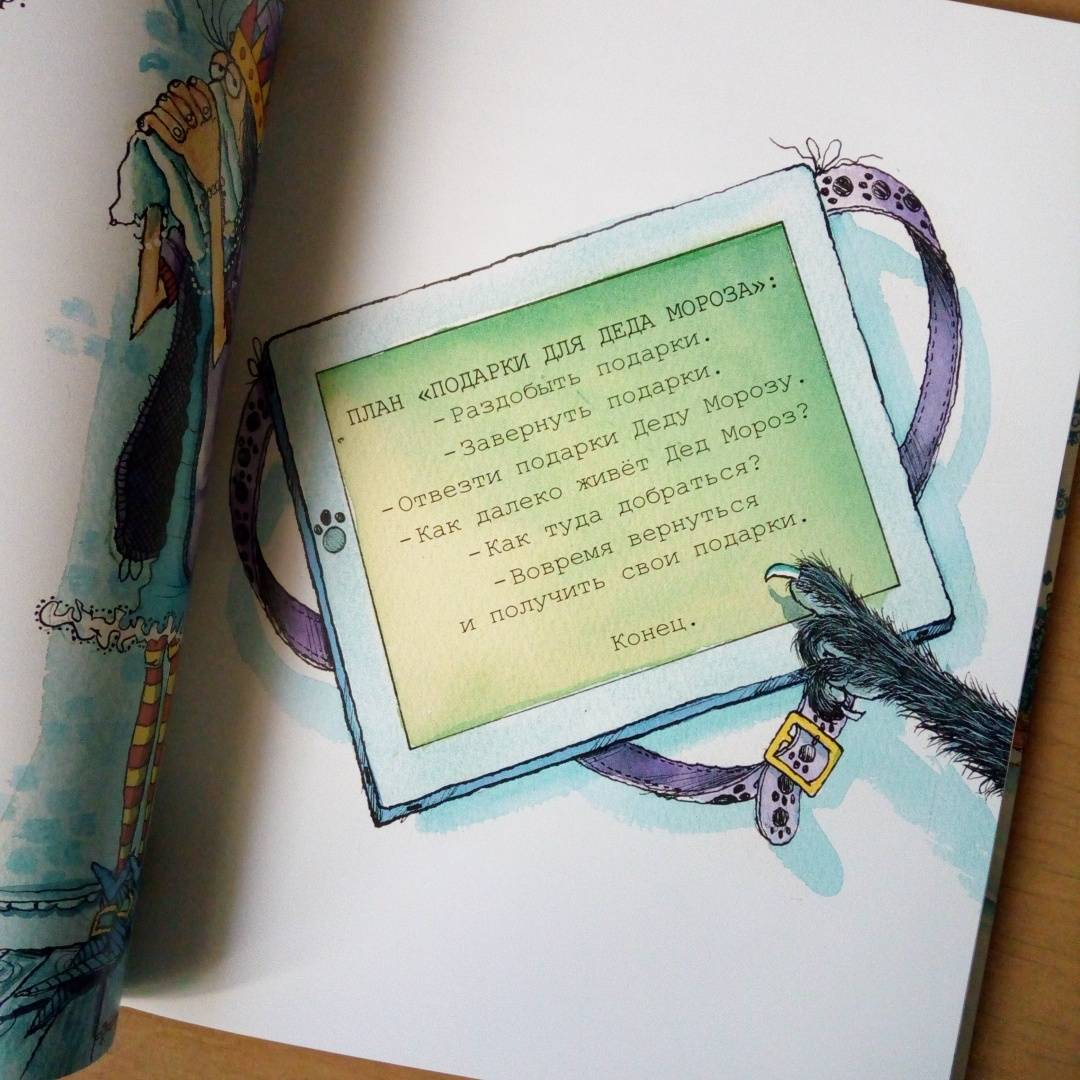 ПЛАН «ПОДАРКИ ДЛЯ ДЕДА МОРОЗА»:
-Раздобыть подарки.
-Завернуть подарки.
-Отвезти подарки Деду Морозу.
-Как далеко живёт Дед Мороз?
-Как туда добраться?
-Вовремя вернуться
и получить свои подарки.
Конец.